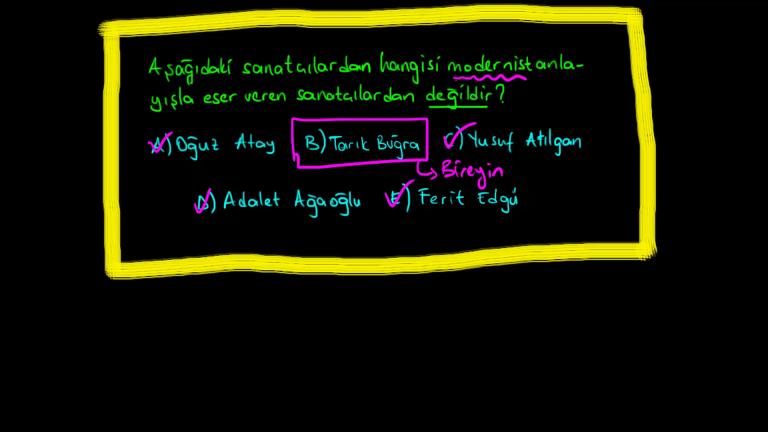 Aşağıdaki sanatçılardan hangisi modernist anla-
yışla eser veren sanatçılardan değildir?
A) Oğuz Atay B) Tarık Buğra C) Yusuf Atılgan
↳ Bireyin
D) Adalet Ağaoğlu E) Ferit Edgü